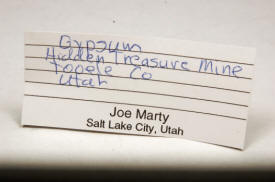 Gypsum
Hidden Treasure Mine
Tooele Co
Utah
Joe Marty
Salt Lake City, Utah